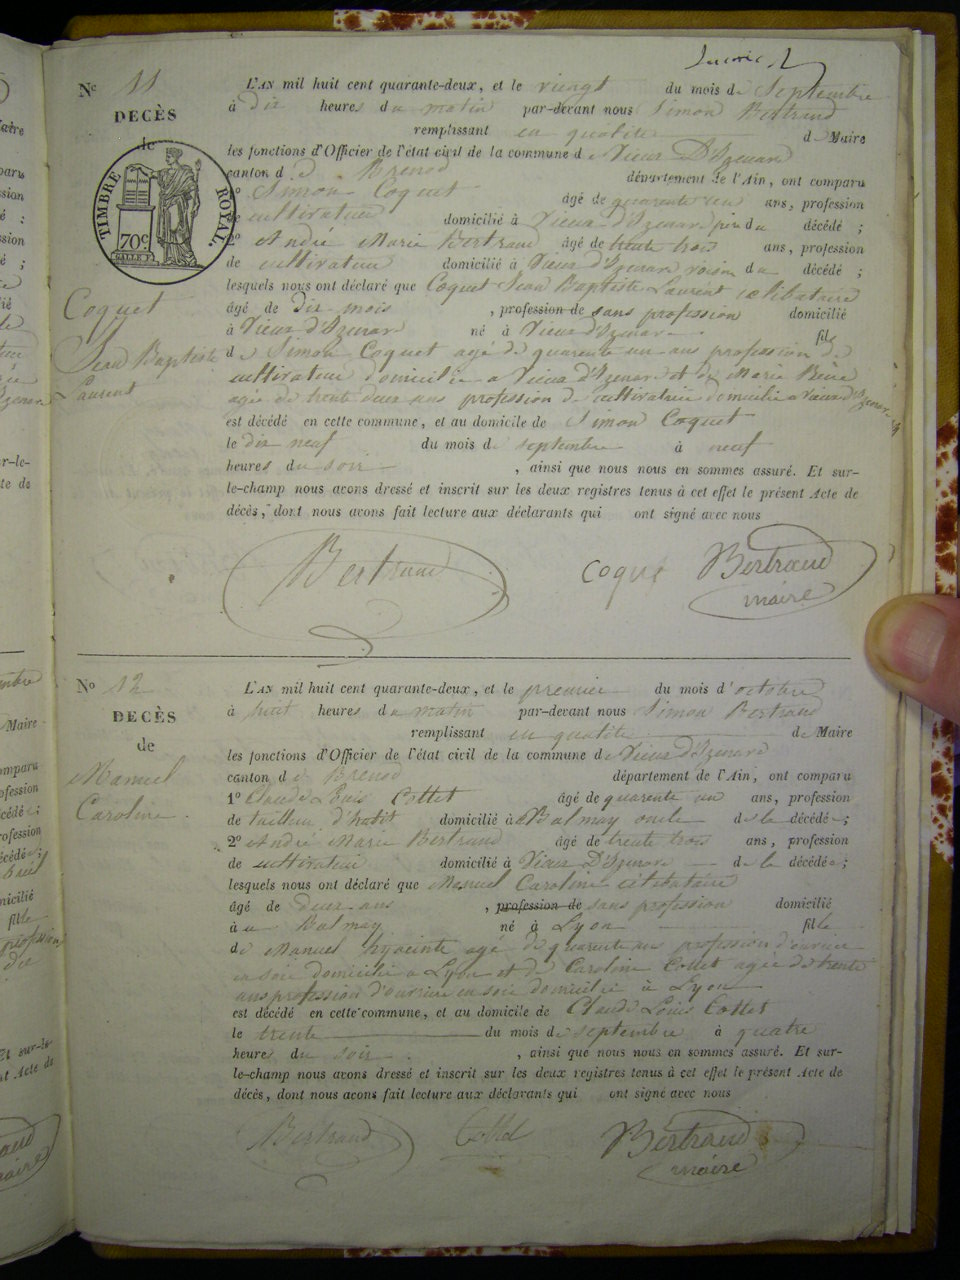 Nº 11
L'AN mil huit cent quarante-deux, et le vingt du mois de Septembre
DECÈS
à dix heures du matin par-devant nous Simon Bertrand
remplissant en qualité de Maire
de
les fonctions d'Officier de l'état civil de la commune de Vieux D'Izenave
canton de Brenod département de l'Ain, ont comparu
TIMBRE ROYAL.
70c
1º Simon Coquet âgé de quarante un ans, profession
de cultivateur domicilié à Vieux d'Izenave père du décédé ;
2º André Marie Bertrand âgé de trente trois ans, profession
de cultivateur domicilié à Vieux d'Izenave voisin du décédé ;
lesquels nous ont déclaré que Coquet Jean Baptiste Laurent célibataire
Coquet
Jean Baptiste
Laurent
âgé de dix mois , profession de sans profession domicilié
à Vieux d'Izenave né à Vieux d'Izenave fils
de Simon Coquet agé de quarente un ans profession de
cultivateur domicilié a Vieux d'Izenave et de Marie
agée de trente deux ans profession de cultivatrice domicilié a Vieux d'Izenave
est décédé en cette commune, et au domicile de Simon Coquet
le dix neuf du mois de septembre à neuf
heures du soir , ainsi que nous nous en sommes assuré. Et sur-
le-champ nous avons dressé et inscrit sur les deux registres tenus à cet effet le présent Acte de
décès, dont nous avons fait lecture aux déclarants qui ont signé avec nous
Bertrand Coquet Bertrand
maire
Nº 12
L'AN mil huit cent quarante-deux, et le premier du mois d'octobre
DECÈS
à huit heures du matin par-devant nous Simon Bertrand
remplissant en qualité de Maire
de
les fonctions d'Officier de l'état civil de la commune de Vieux d'Izenave
Manuel
Caroline
canton de Brenod département de l'Ain, ont comparu
1º Claude Louis Collet âgé de quarente un ans, profession
de tailleur d'habit domicilié à Balmay oncle de la décédée ;
2º André Marie Bertrand âgé de trente trois ans, profession
de cultivateur domicilié à Vieux D'Izenave de la décédée ;
lesquels nous ont déclaré que Manuel Caroline célibataire
âgé de deux ans , profession de sans profession domicilié
à au Balmay né à Lyon fille
de Manuel hyacinte agé de quarente ans profession d'ouvrier
en soie domicilié a Lyon et de Caroline Collet agée de trente
ans profession d'ouvrière en soie domicilié à Lyon
est décédé en cette commune, et au domicile de Claude Louis Collet
le trente du mois de septembre à quatre
heures du soir , ainsi que nous nous en sommes assuré. Et sur-
le-champ nous avons dressé et inscrit sur les deux registres tenus à cet effet le présent Acte de
décès, dont nous avons fait lecture aux déclarants qui ont signé avec nous
Bertrand Collet Bertrand
maire